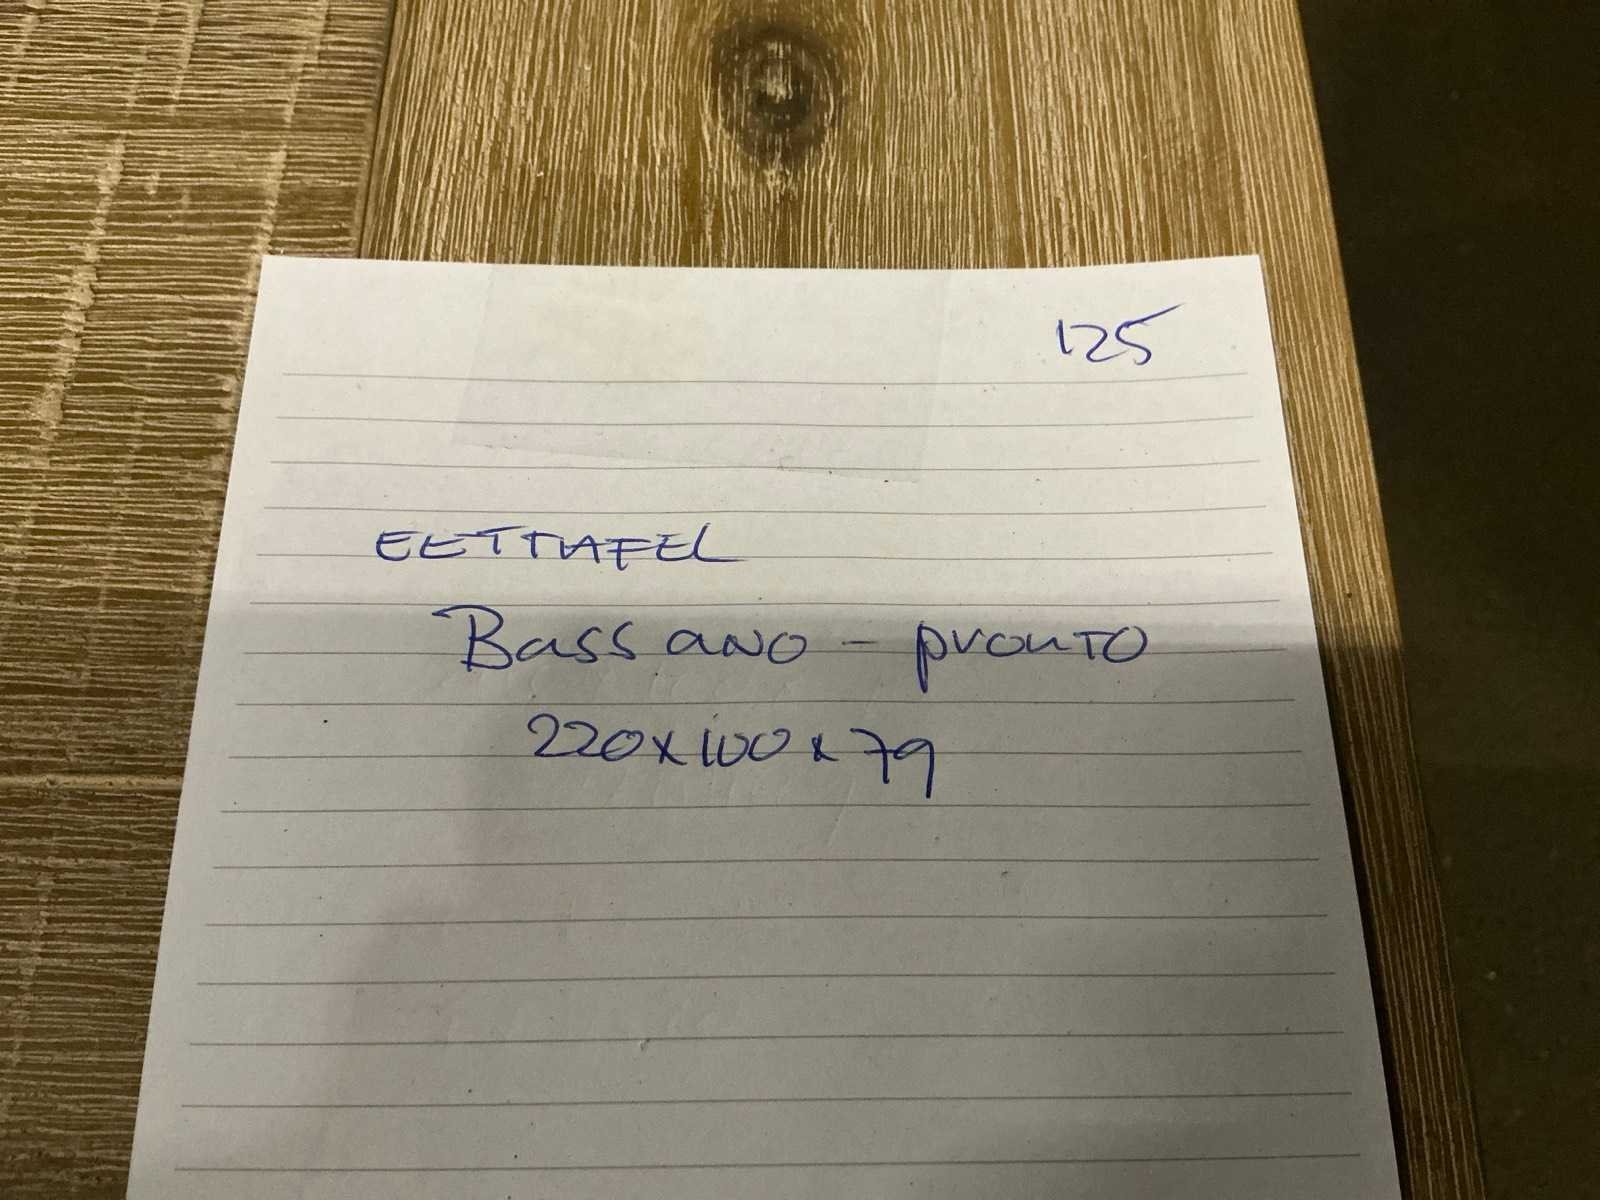 125
EETTAFEL
Bassano - pronto
220x100x79